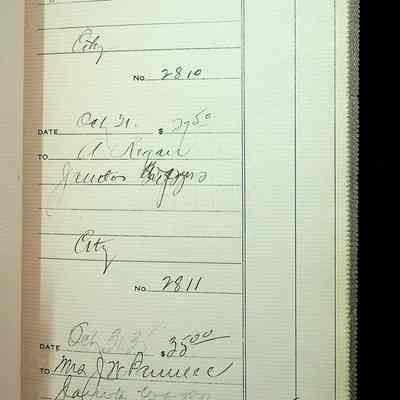 City
No 2810
DATE Oct 31. $ 27 50
TO A Regan
Janitor
City
No 2811
DATE Oct 31, 38 $ 35 00
TO Mrs J W